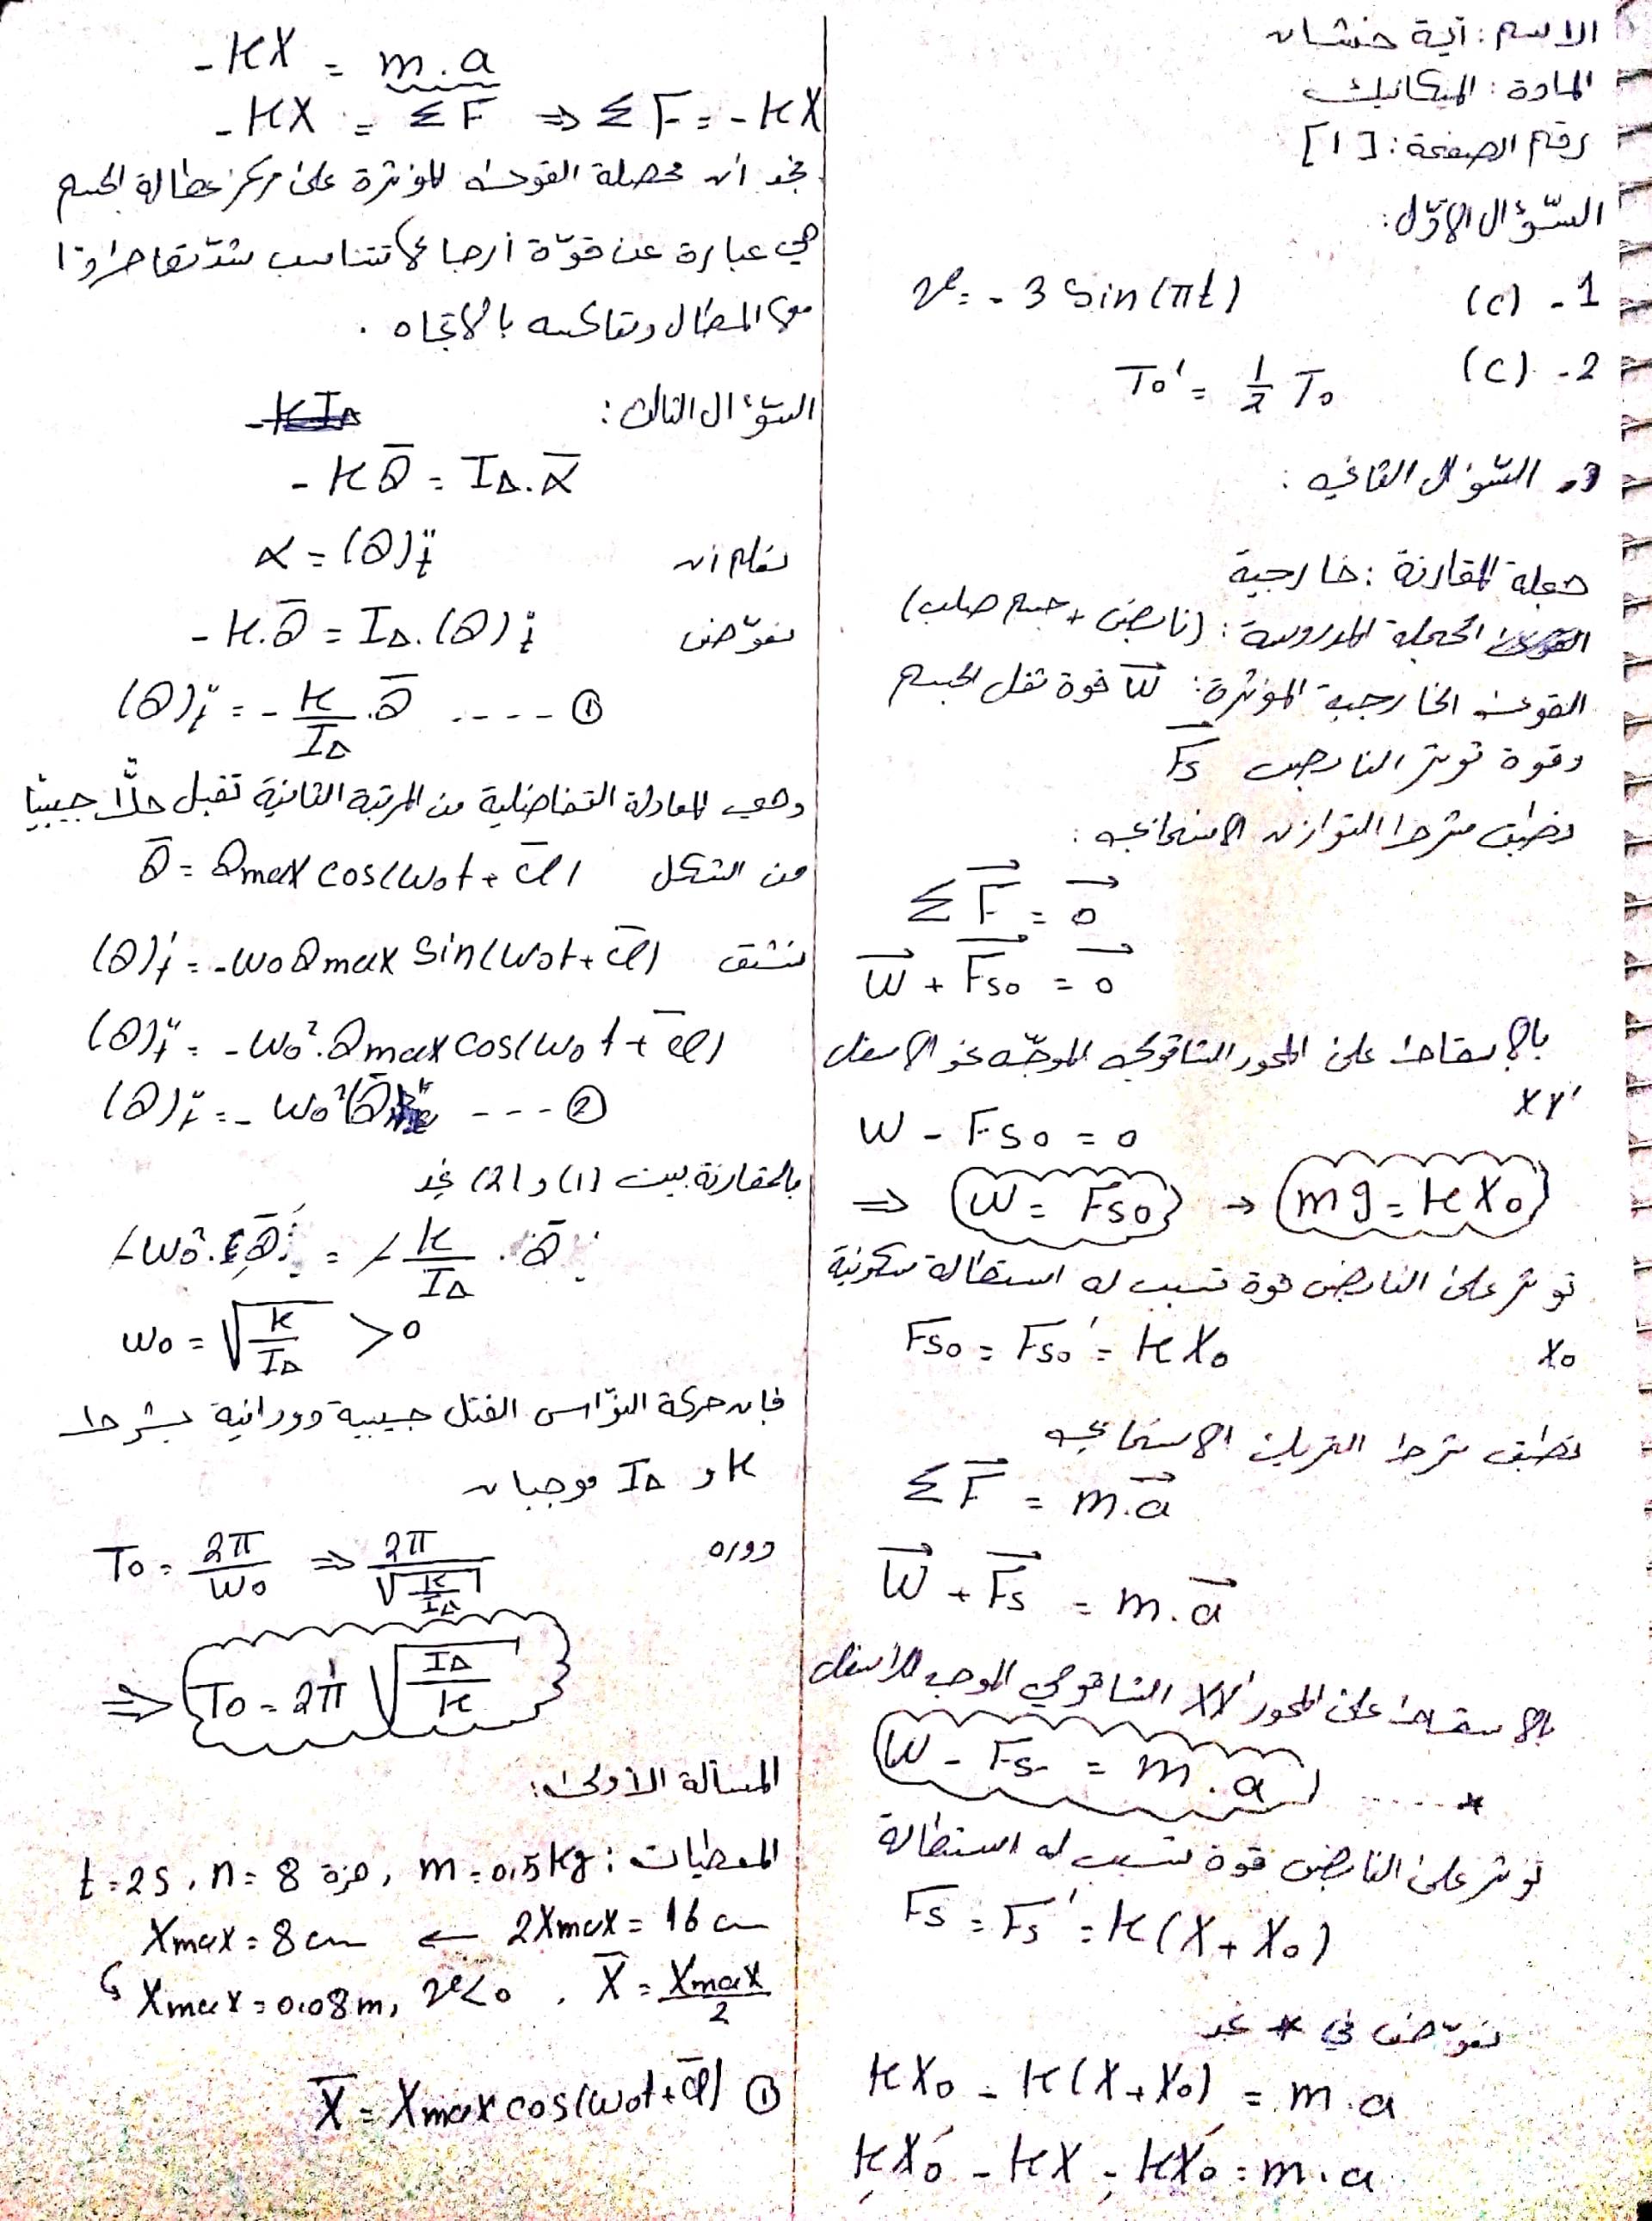 الاسم : آية خشان
المادة : الميكانيك
رقم الصفحة : [1]
السّؤال الأوّل :
1 - (c) v = - 3 sin(πt)
2 - (c) T₀' = 1/2 T₀
السّؤال الثاني :
جملة المقارنة : خارجية
الجملة المدروسة : (نابض + جسم صلب)
القوى الخارجية المؤثرة : W قوة ثقل الجسم
وقوة توتر النابض Fs
نطبق شرط التوازن الانسحابي :
ΣF = 0
W + Fs₀ = 0
بالإسقاط على المحور الشاقولي الموجّه نحو الاسفل
xx'
W - Fs₀ = 0
⇒ W = Fs₀ → mg = kx₀
تؤثر على النابض قوة تسبب له استطالة سكونية
x₀ Fs₀ = Fs₀' = kx₀
نطبق شرط التحريك الانسحابي
ΣF = m.a
W + Fs = m.a
بالإسقاط على المحور xx' الشاقولي الموجه للأسفل
W - Fs = m.a ..... *
تؤثر على النابض قوة تسبب له استطالة
Fs = Fs' = k(x + x₀)
نعوّض في * نجد
kx₀ - k(x + x₀) = m.a
kx₀ - kx - kx₀ = m.a
-kx = m.a
-kx = ΣF ⇒ ΣF = -kx
نجد أن محصلة القوى المؤثرة على مركز عطالة الجسم
هي عبارة عن قوّة أرجاع تتناسب شدّتها طرداً
مع المطال وتعاكسه بالاتجاه .
السّؤال الثالث :
-kθ̄ = I∆.ᾱ
نعلم أن α = (θ)ₜ''
نعوّض -k.θ̄ = I∆.(θ)ₜ''
(θ)ₜ'' = - k/I∆ .θ̄ .... ①
وهي المعادلة التفاضلية من المرتبة الثانية تقبل حلاً جيبيّاً
من الشكل θ̄ = θmax cos(ω₀t + φ̄)
نشتق (θ)ₜ' = -ω₀θmax sin(ω₀t + φ̄)
(θ)ₜ'' = -ω₀².θmax cos(ω₀t + φ̄)
(θ)ₜ'' = -ω₀²θ̄ --- ②
بالمقارنة بين (1) و (2) نجد
-ω₀².θ̄ = - k/I∆ .θ̄
ω₀ = √(k/I∆) > 0
فإن حركة النوّاس الفتل جيبية دورانية بشرط
k و I∆ موجبان
دوره T₀ = 2π/ω₀ ⇒ 2π/√(k/I∆)
⇒ T₀ = 2π √(I∆/k)
المسألة الأولى :
المعطيات : m = 0,5 kg , هزة n = 8 , t = 2s
2Xmax = 16 cm ← Xmax = 8 cm
Xmax = 0.08 m, v < 0 , X̄ = Xmax/2
X̄ = Xmax cos(ω₀t + φ̄) ①